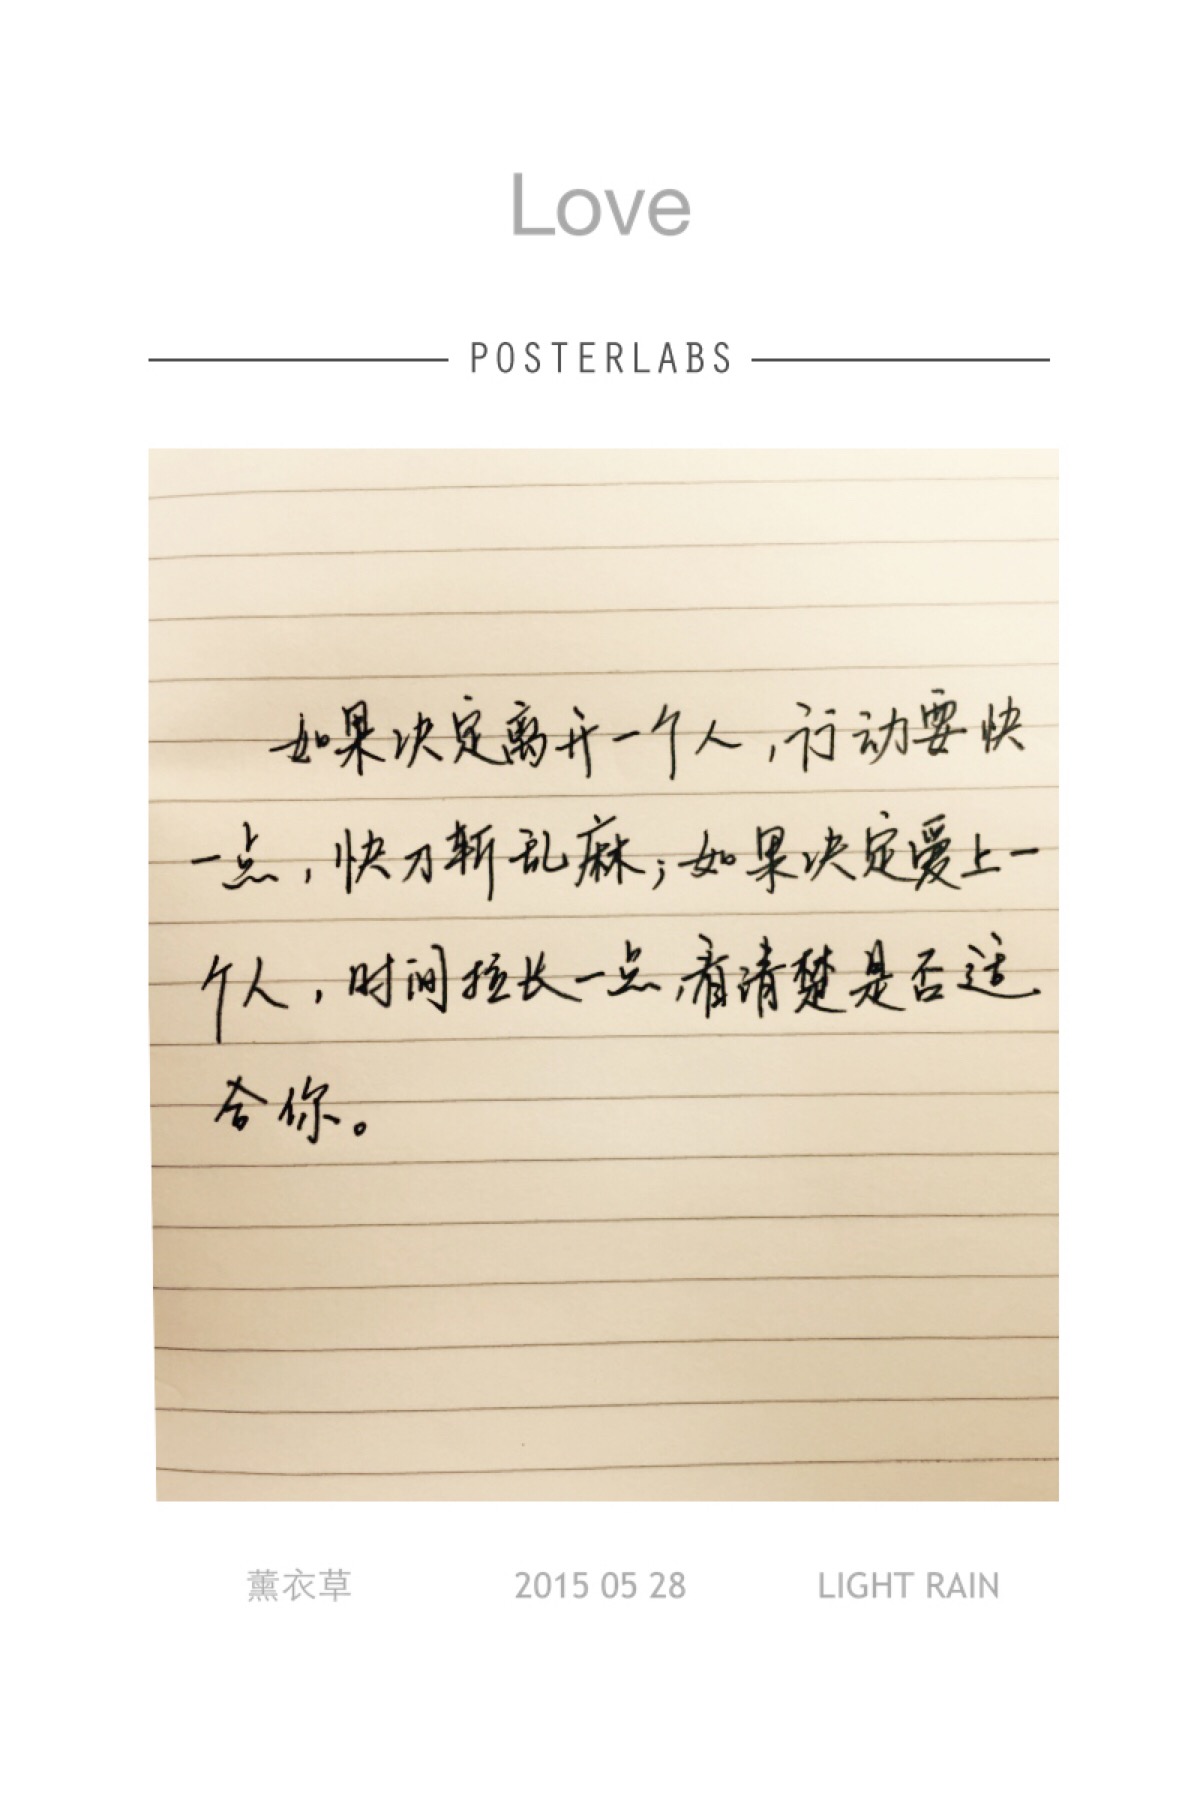 Love
POSTERLABS
如果决定离开一个人，行动要快
一点，快刀斩乱麻；如果决定爱上一
个人，时间拉长一点，看清楚是否适
合你。
薰衣草 2015 05 28 LIGHT RAIN